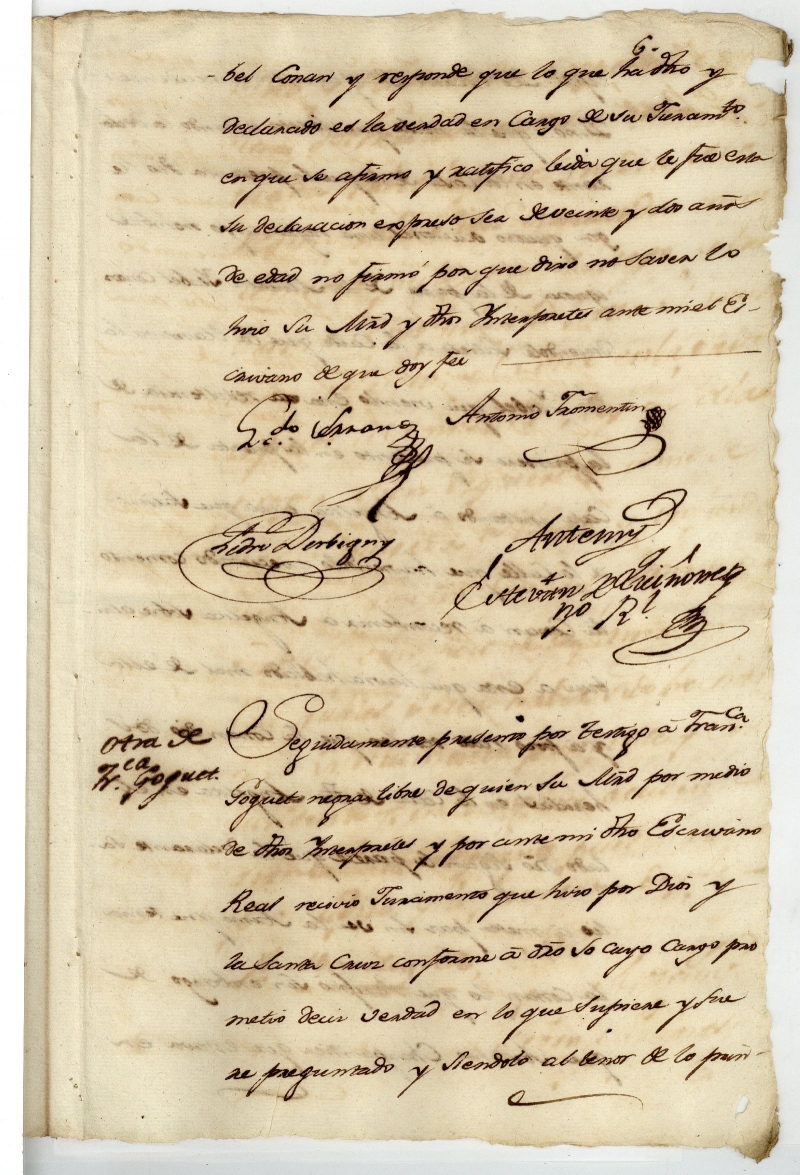 6.
-bel Conan y responde que lo que ha dho y
declarado es la verdad en Cargo de su Juramto.
en que se afirmo y ratifico leida que le fue esta
su declaracion expreso ser de veinte y dos años
de edad no firmó por que dixo no saver lo
hizo su Mrd y dhos Interpretes ante mi el Es-
crivano de que doy feé
Lcdo Serrano
Antonio Fromentin
Pedro Derbigny
Antemy
Estevan de Quiñones
no Rl
Otra de
Fca Goguet.
Seguidamente presento por testigo á Franca
Goguet negra libre de quien su Mrd por medio
de dhos Interpretes y por ante mi dho Escrivano
Real recivio Juramento que hizo por Dios y
la Santa Cruz conforme á dro so cuyo Cargo pro
metio decir verdad en lo que supiere y fue
re preguntado y siendolo al tenor de lo prin-